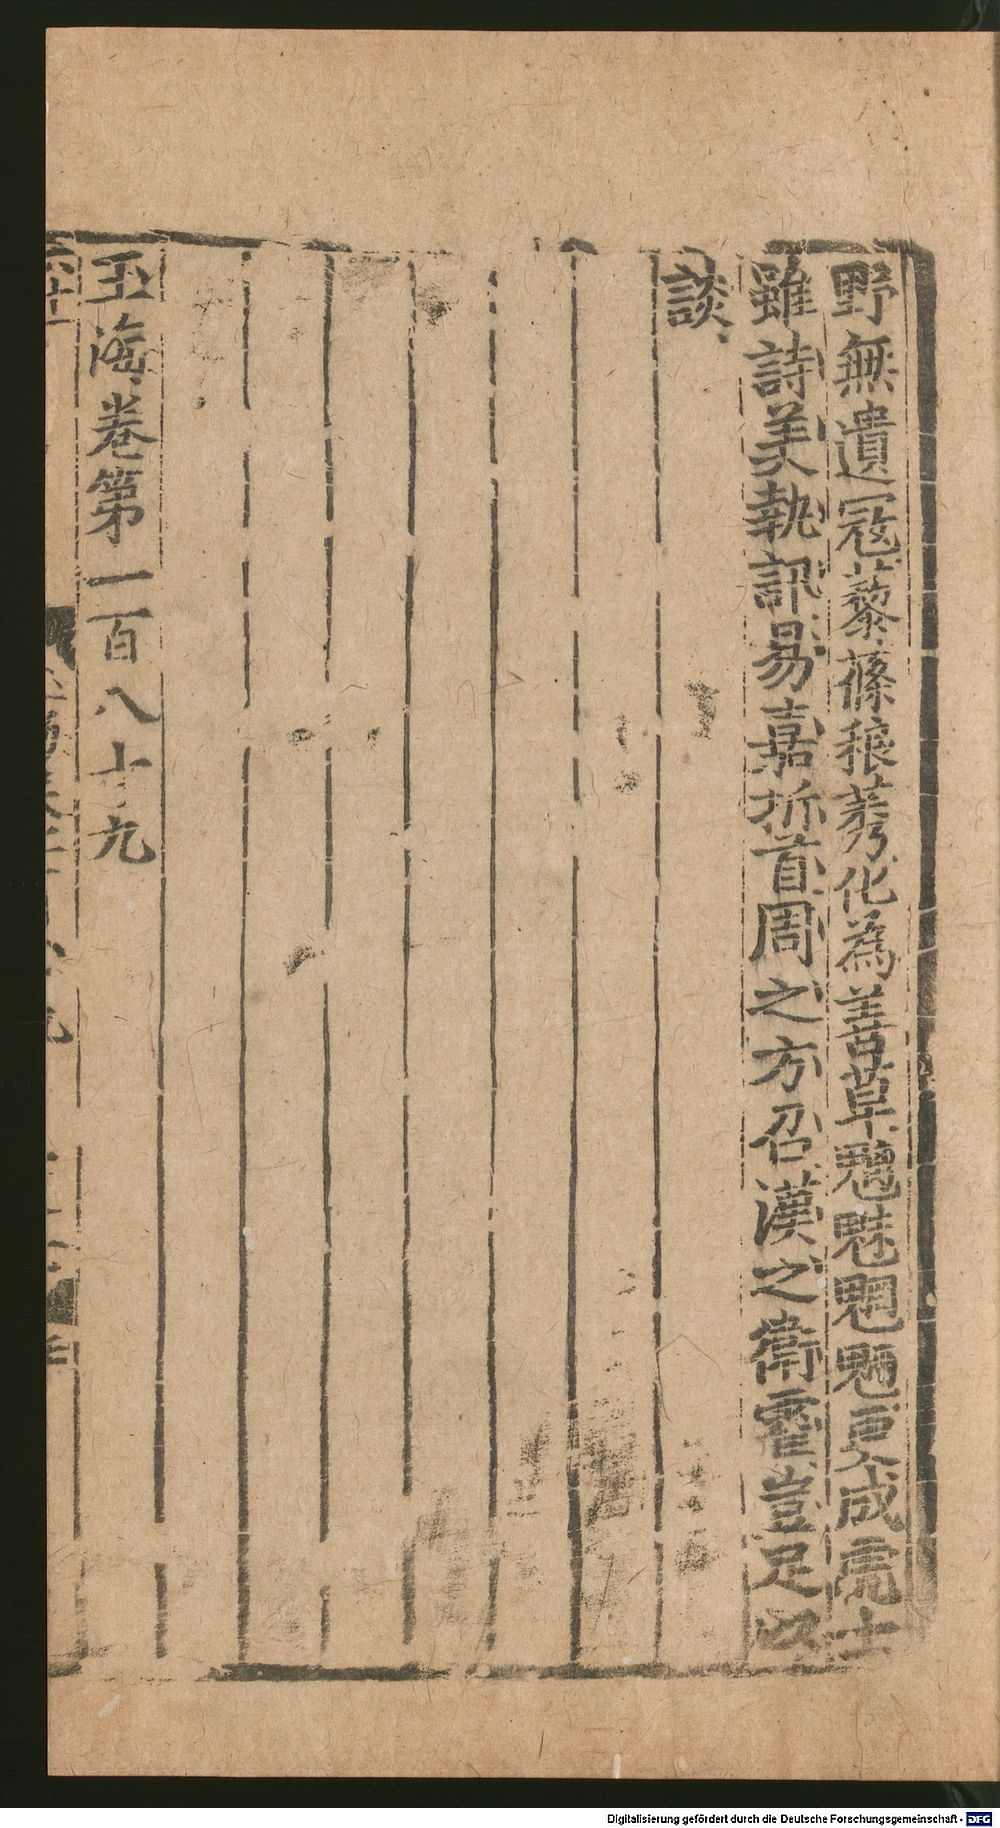 野無遺冦藜蓧稂莠化為善草魑魅魍魎更成虎士
雖詩美執訊易嘉折首周之方召漢之衛霍豈足以
談
玉海卷第一百八十九
Digitalisierung gefördert durch die Deutsche Forschungsgemeinschaft - DFG